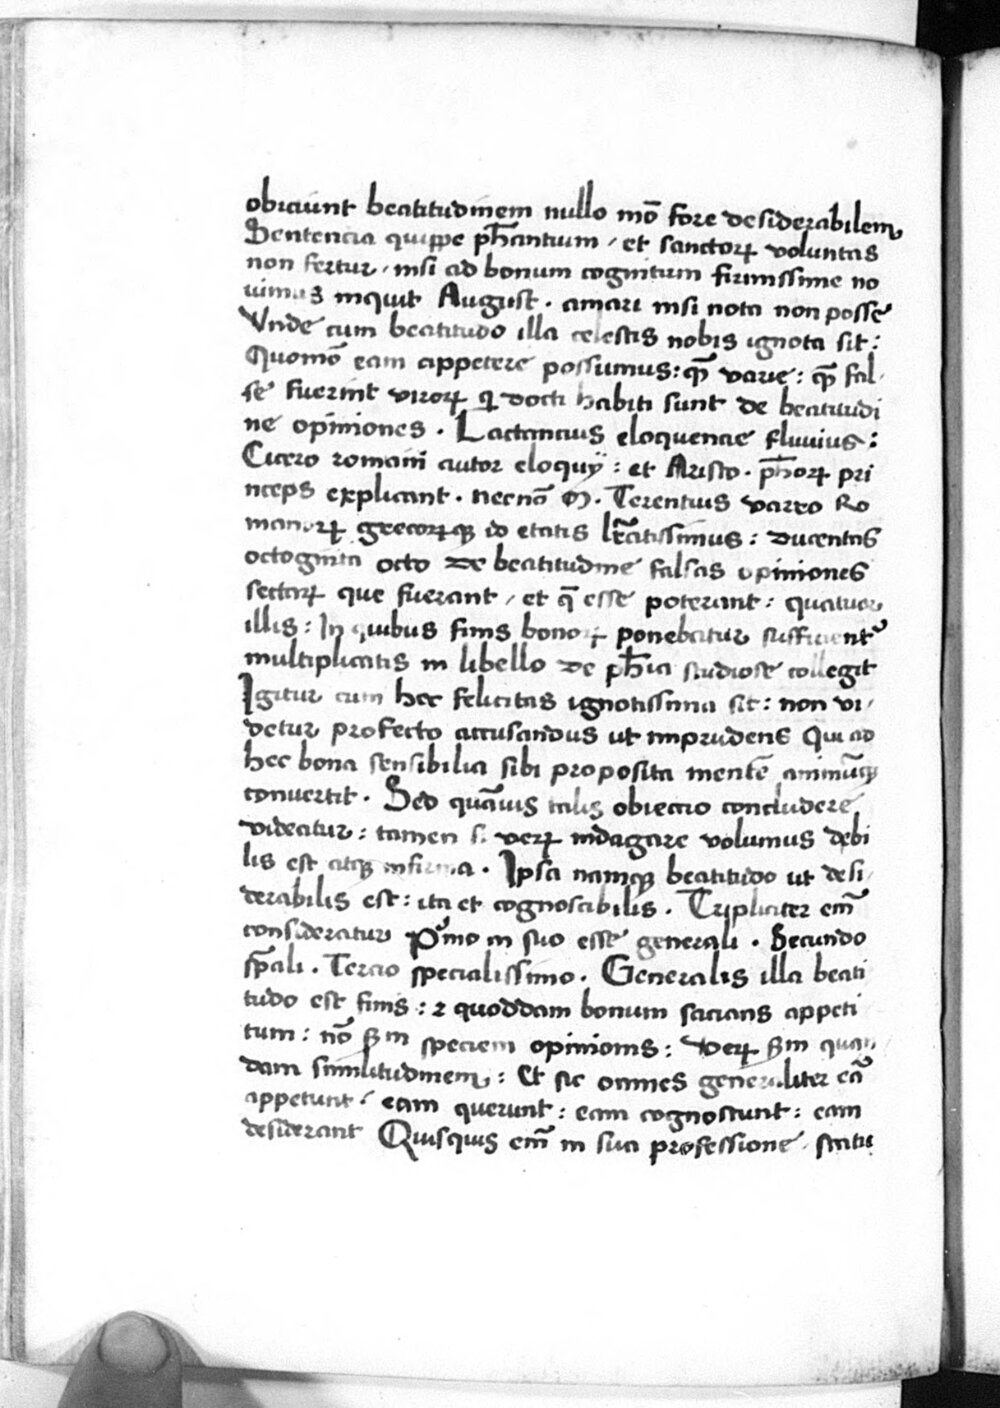 obiciunt beatitudinem nullo mō fore desiderabilem
Sentencia quippe ph̄antium / et sanctoꝝ voluntas
non fertur / nisi ad bonum cognitum firmissime no
uimus inquit August . amari nisi nota non posse
Vnde cum beatitudo illa celestis nobis ignota sit :
Quomō eam appetere possumus : qꝫ̄ varie : qꝫ̄ fal-
se fuerint viroꝝ qi docti habiti sunt de beatitudi
ne opiniones . Lactancius eloquencie fluuius :
Cicero romani autor eloquÿ : et Aristo . ph̄oꝝ pri
nceps explicant . necnō M . Terentius varro Ro
manoꝝ grecoꝝqꝫ id etatis lr̄atissimus : ducentas
octoginta octo de beatitudine falsas opiniones
sectaꝝ que fuerant / et q̄ esse poterant : quatuor
illis : In quibus finis bonoꝝ ponebatur sufficient
multiplicatis in libello de ph̄ia studiose collegit
Igitur cum hec felicitas ignotissima sit : non vi/
detur profecto accusandus ut imprudens Qui ad
hec bona sensibilia sibi proposita mentē animūqꝫ
conuertit . Sed quāuis talis obiectio concludere
videatur : tamen si veꝝ indagare volumus debi
lis est atqꝫ infirma . Ipsa namqꝫ beatitudo ut desi/
derabilis est : ita et cognoscibilis . Tripliciter em̄
consideratur Pimo in suo esse generali . Secundo
sp̄ali . Tercio specialissimo . Generalis illa beati
tudo est finis : ⁊ quoddam bonum sacians appeti
tum : nō sm̄ speciem opinionis : veꝝ sm̄ quan
dam similitudinem : Et sic omnes generaliter eā
appetunt / eam querunt : eam cognoscunt : eam
desiderant Quisquis em̄ in sua professione statu